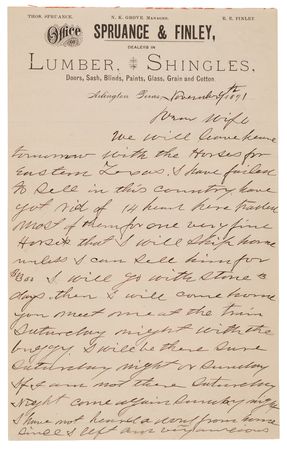 THOS. SPRUANCE. N. K. GROVE, MANAGER. E. E. FINLEY
Office of SPRUANCE & FINLEY,
DEALERS IN
LUMBER, SHINGLES,
Doors, Sash, Blinds, Paints, Glass, Grain and Cotton.
Arlington Texas, November 1891
Dear Wife
We will leave here
tomorrow with the Horses for
Eastern Texas. I have failed
to sell in this country have
got rid of 14 head here traded
most of them for one very fine
Horse that I will ship home
unless I can sell him for
I will go with Stone 3
days. then I will come home
you meet me at the train
Saturday night with the
buggy. I will be there sure
Saturday night or Sunday
If I am not there Saturday
Night come again Sunday night
I have not heard a word from home
since I left am very anxious